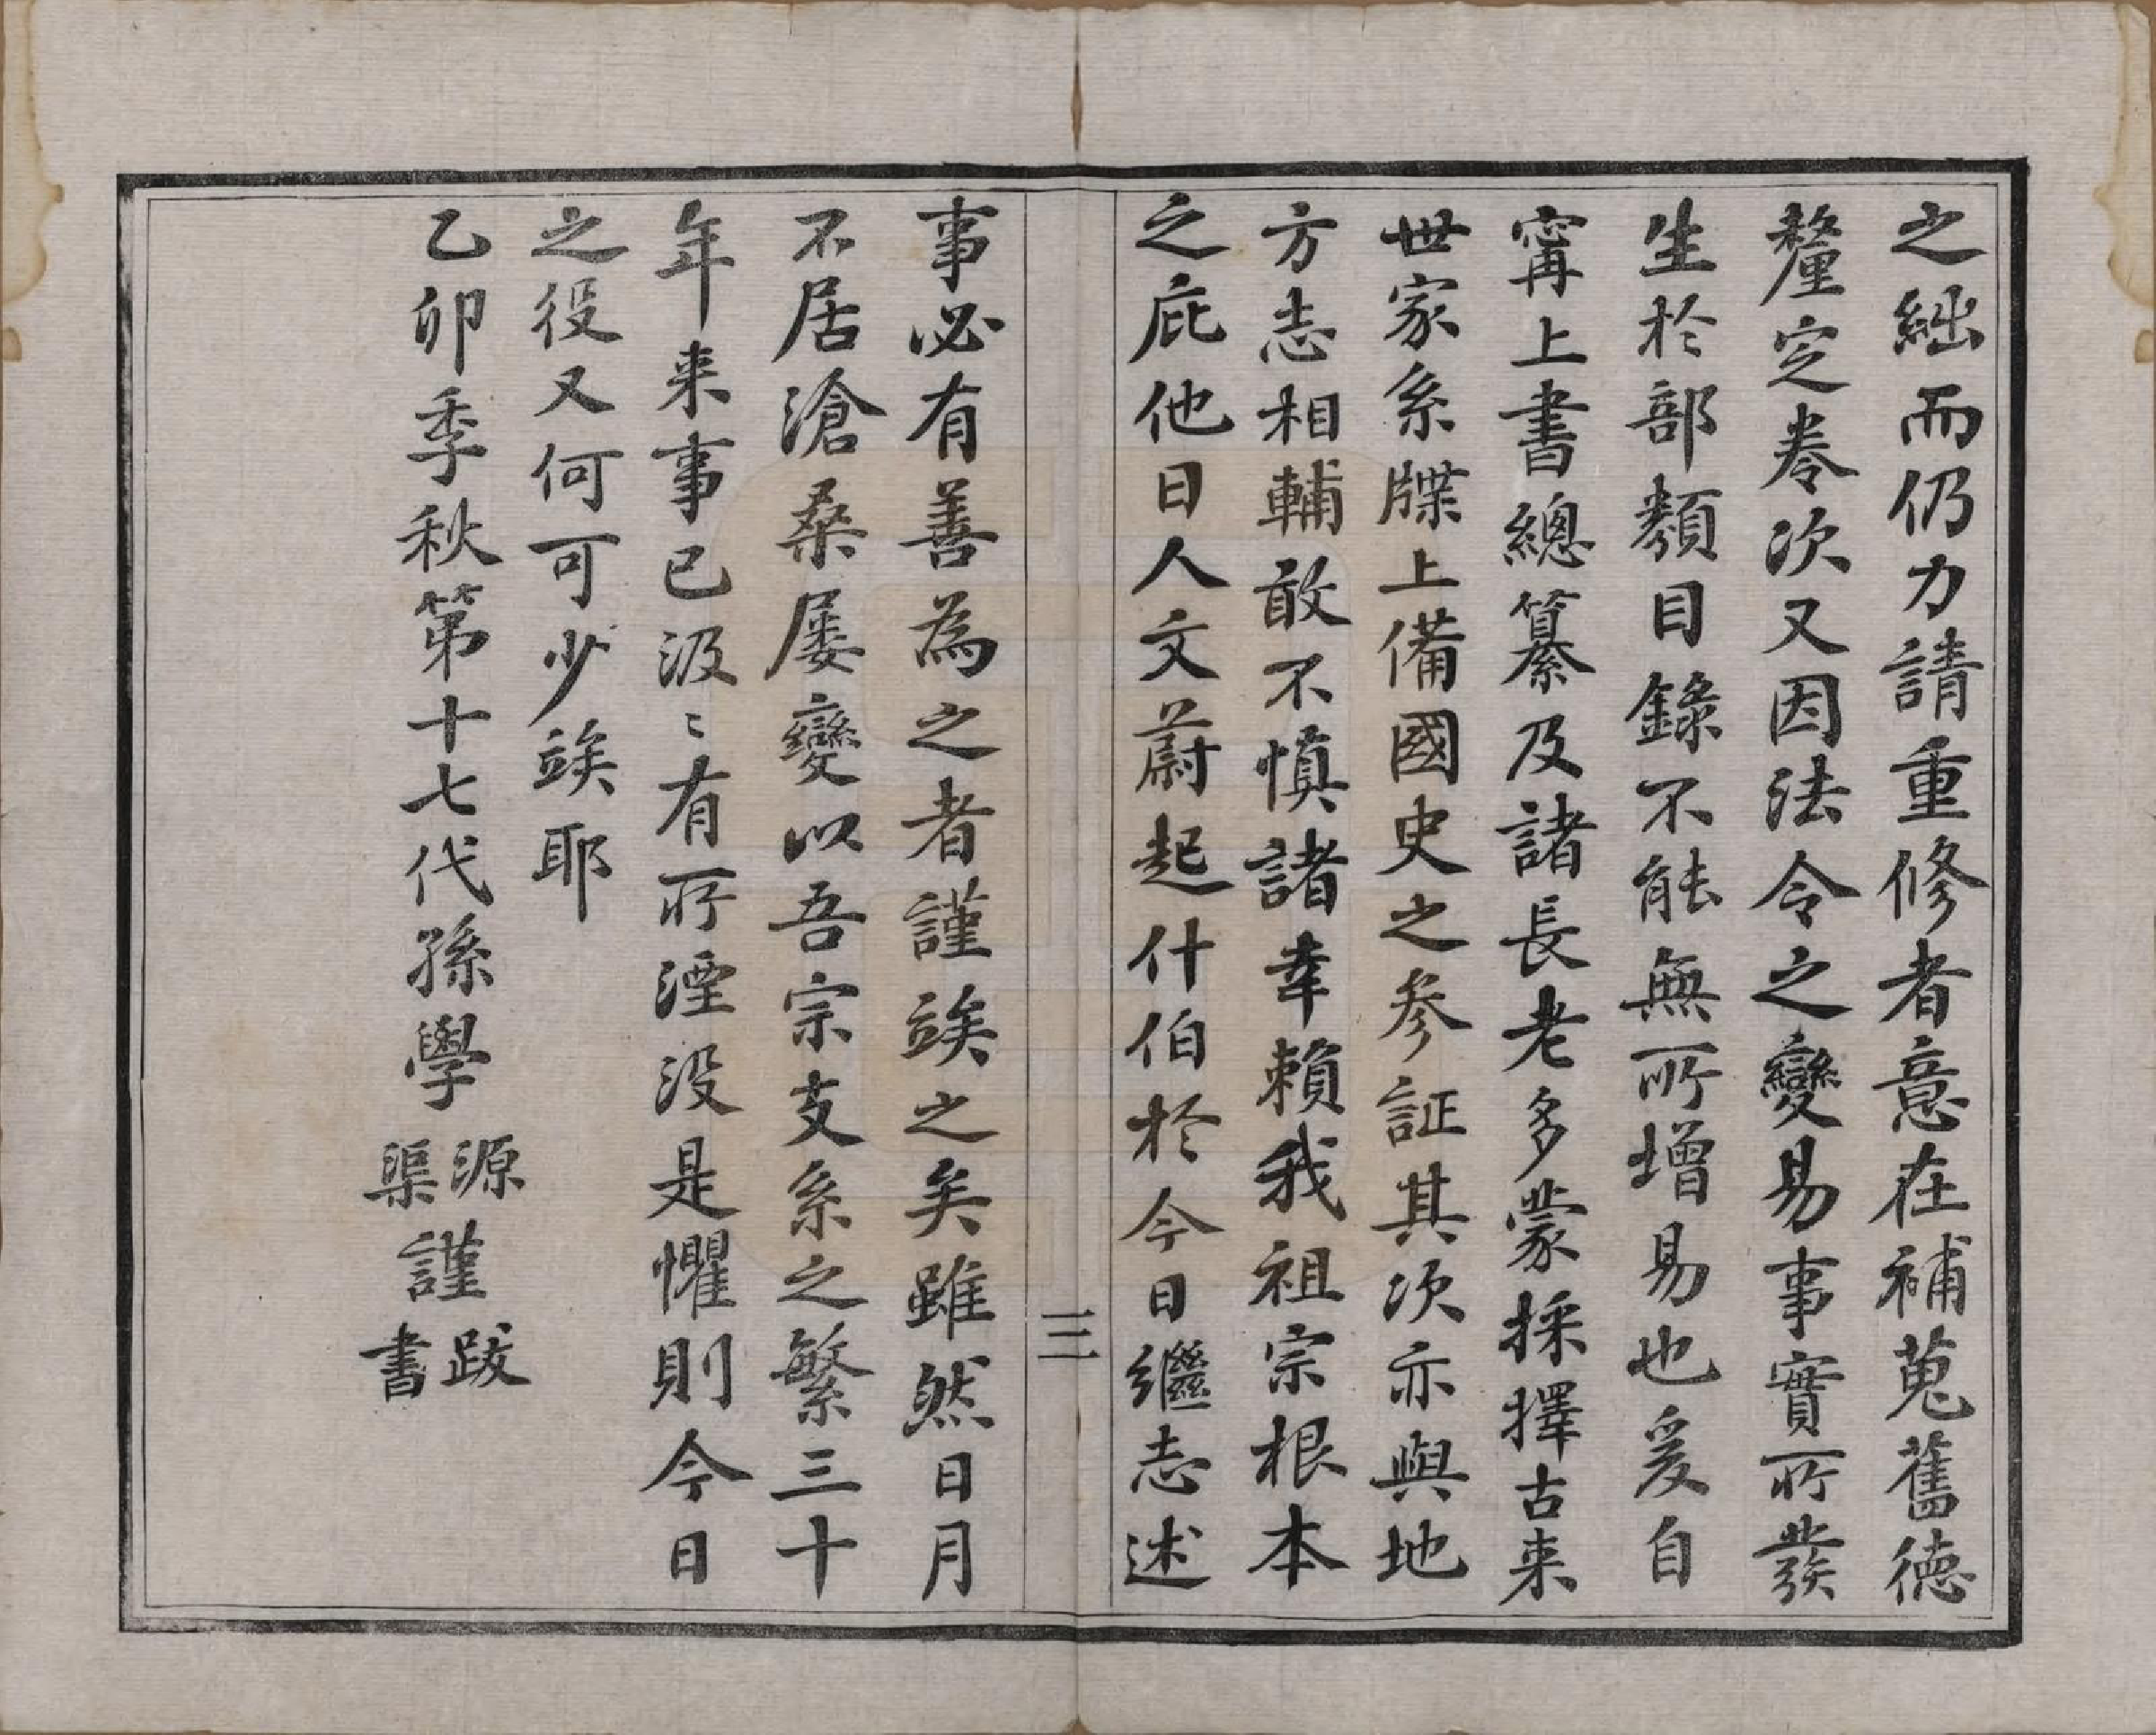 之絀而仍力請重修者意在補蒐舊徳
釐定卷次又因法令之變易事實所發
生於部類目錄不能無所增易也爰自
甯上書總纂及諸長老多蒙採擇古来
世家系牒上備國史之参証其次亦與地
方志相輔敢不慎諸幸賴我祖宗根本
之庇他日人文蔚起什伯於今日繼志述
三
事必有善為之者謹竢之矣雖然日月
不居滄桑屡變以吾宗支系之繁三十
年来事已汲〻有所湮没是懼則今日
之役又何可少竢耶
乙卯季秋第十七代孫學源渠謹跋書